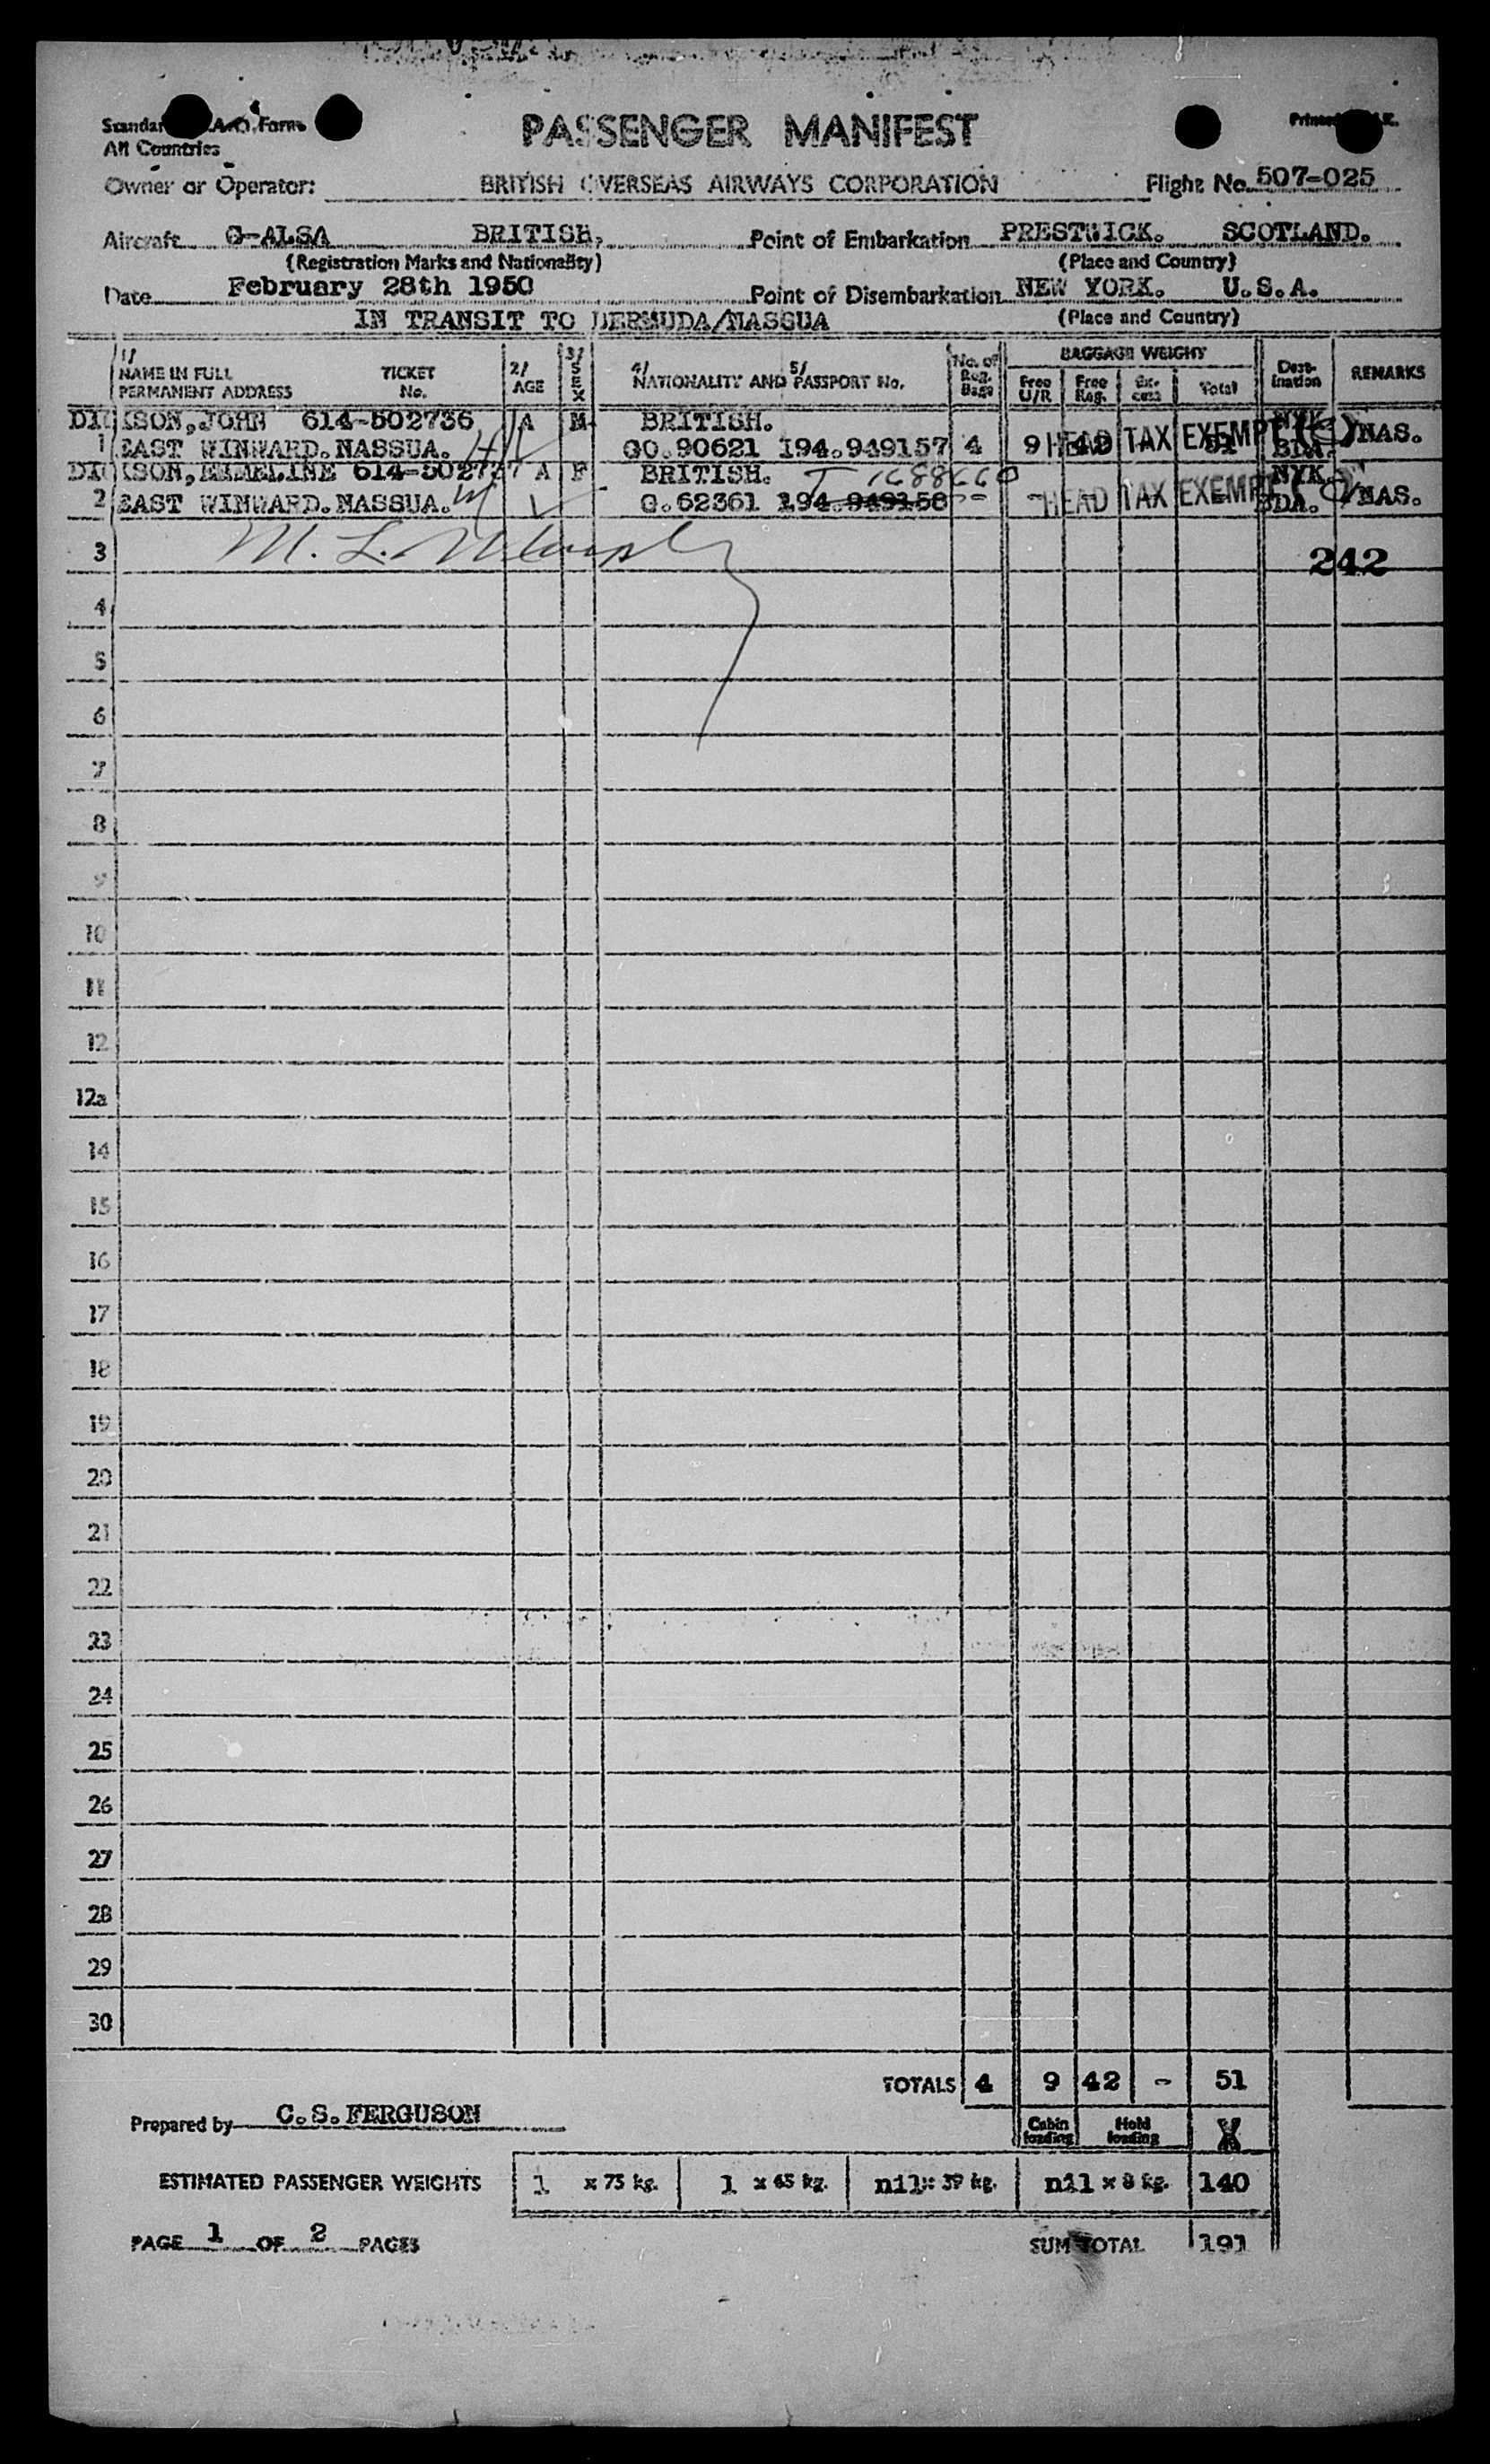 All Countries
PASSENGER MANIFEST
Owner or Operator: BRITISH OVERSEAS AIRWAYS CORPORATION Flight No. 507-025
Aircraft G-ALSA BRITISH, Point of Embarkation PRESTWICK. SCOTLAND.
(Registration Marks and Nationality) (Place and Country)
Date February 28th 1950 Point of Disembarkation NEW YORK. U.S.A.
IN TRANSIT TO BERMUDA/NASSUA (Place and Country)
1/ NAME IN FULL PERMANENT ADDRESS TICKET No. 2/ AGE 3/ SEX 4/ NATIONALITY AND 5/ PASSPORT No. No. of Reg. Bags BAGGAGE WEIGHT Free U/R Free Reg. Ex-cess Total Dest-ination REMARKS
DICKSON, JOHN 614-502736 A M BRITISH. NYK
1 EAST WINWARD. NASSUA. GO.90621 I94.949157 4 9 42 51 HEAD TAX EXEMPT BDA. NAS.
DICKSON, EMMELINE 614-502737 A F BRITISH. T 1688660 NYK
2 EAST WINWARD. NASSUA. G.62361 I94.949158 - - HEAD TAX EXEMPT BDA. NAS.
3 M. L. 242
4
5
6
7
8
9
10
11
12
12a
14
15
16
17
18
19
20
21
22
23
24
25
26
27
28
29
30
TOTALS 4 9 42 - 51
Prepared by C.S.FERGUSON Cabin loading Hold loading
ESTIMATED PASSENGER WEIGHTS 1 x 75 kg. 1 x 65 kg. nil x 39 kg. nil x 8 kg. 140
PAGE 1 OF 2 PAGES SUM TOTAL 191